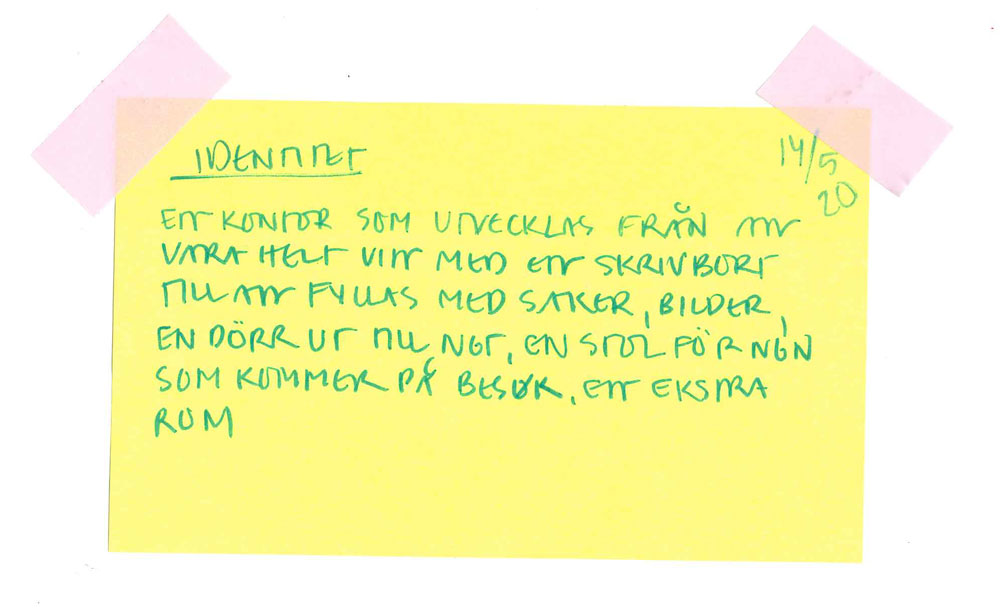 IDENTITET
14/5
20
ETT KONTOR SOM UTVECKLAS FRÅN ATT
VARA HELT VITT MED ETT SKRIVBORT
TILL ATT FYLLAS MED SAKER, BILDER,
EN DÖRR UT TILL NGT, EN STOL FÖR NÅN
SOM KOMMER PÅ BESØK, ETT EKSTRA
ROM